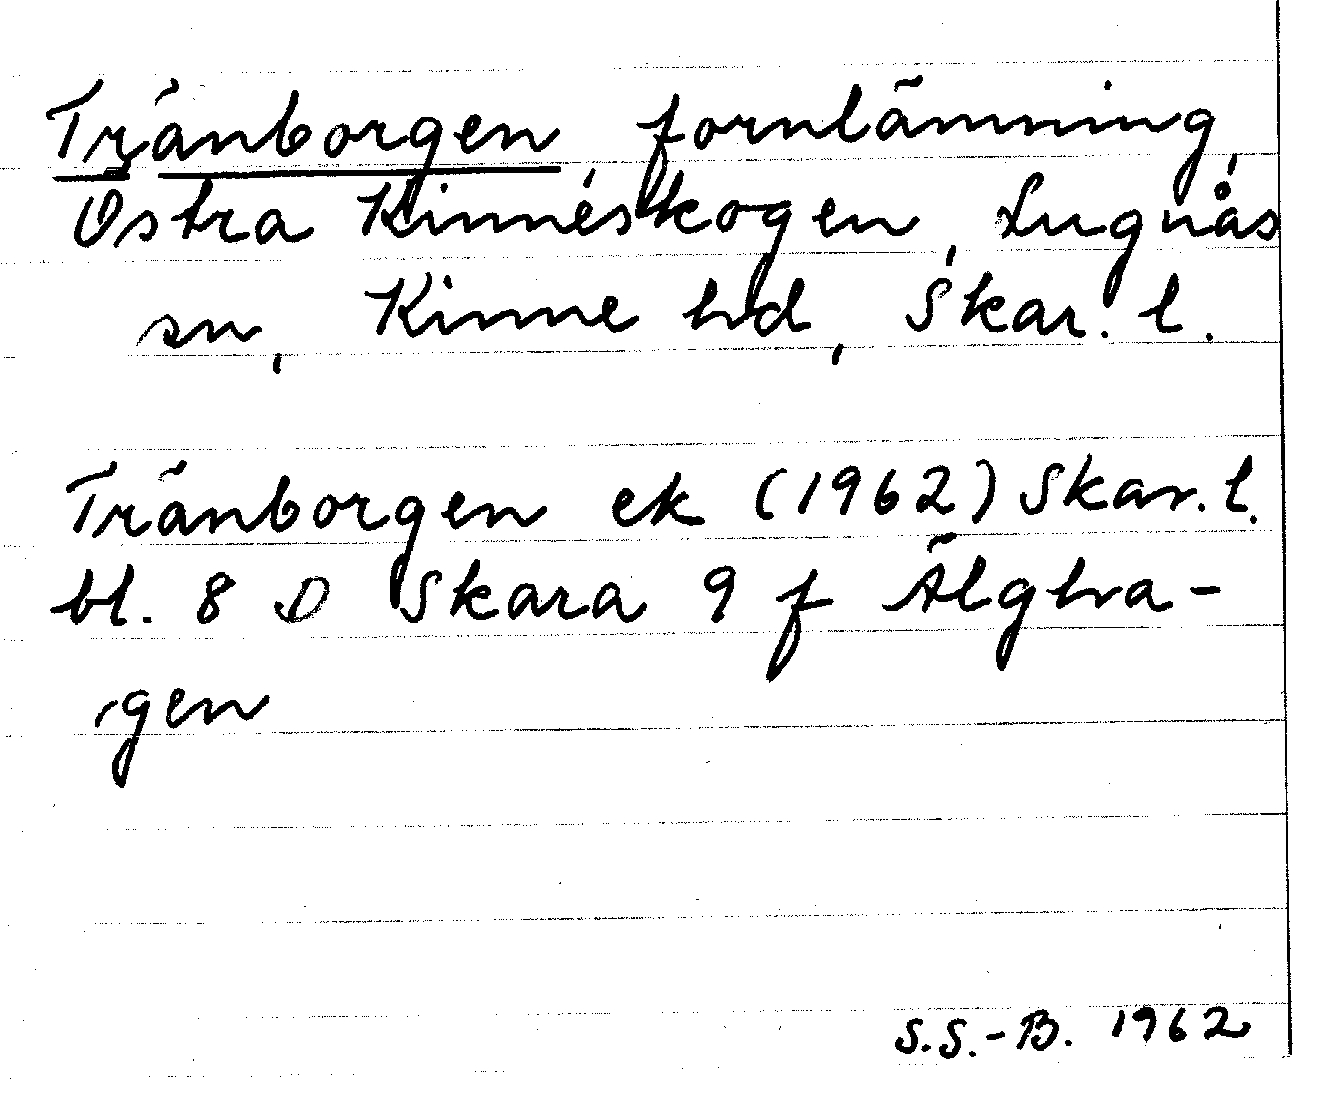 Tränborgen, fornlämning,
Östra Kinneskogen, Lugnås
sn, Kinne hd, Skar. l.
Tränborgen ek (1962) Skar. l.
bl. 8 D Skara 9 f Älgha-
gen
S.S.-B. 1962